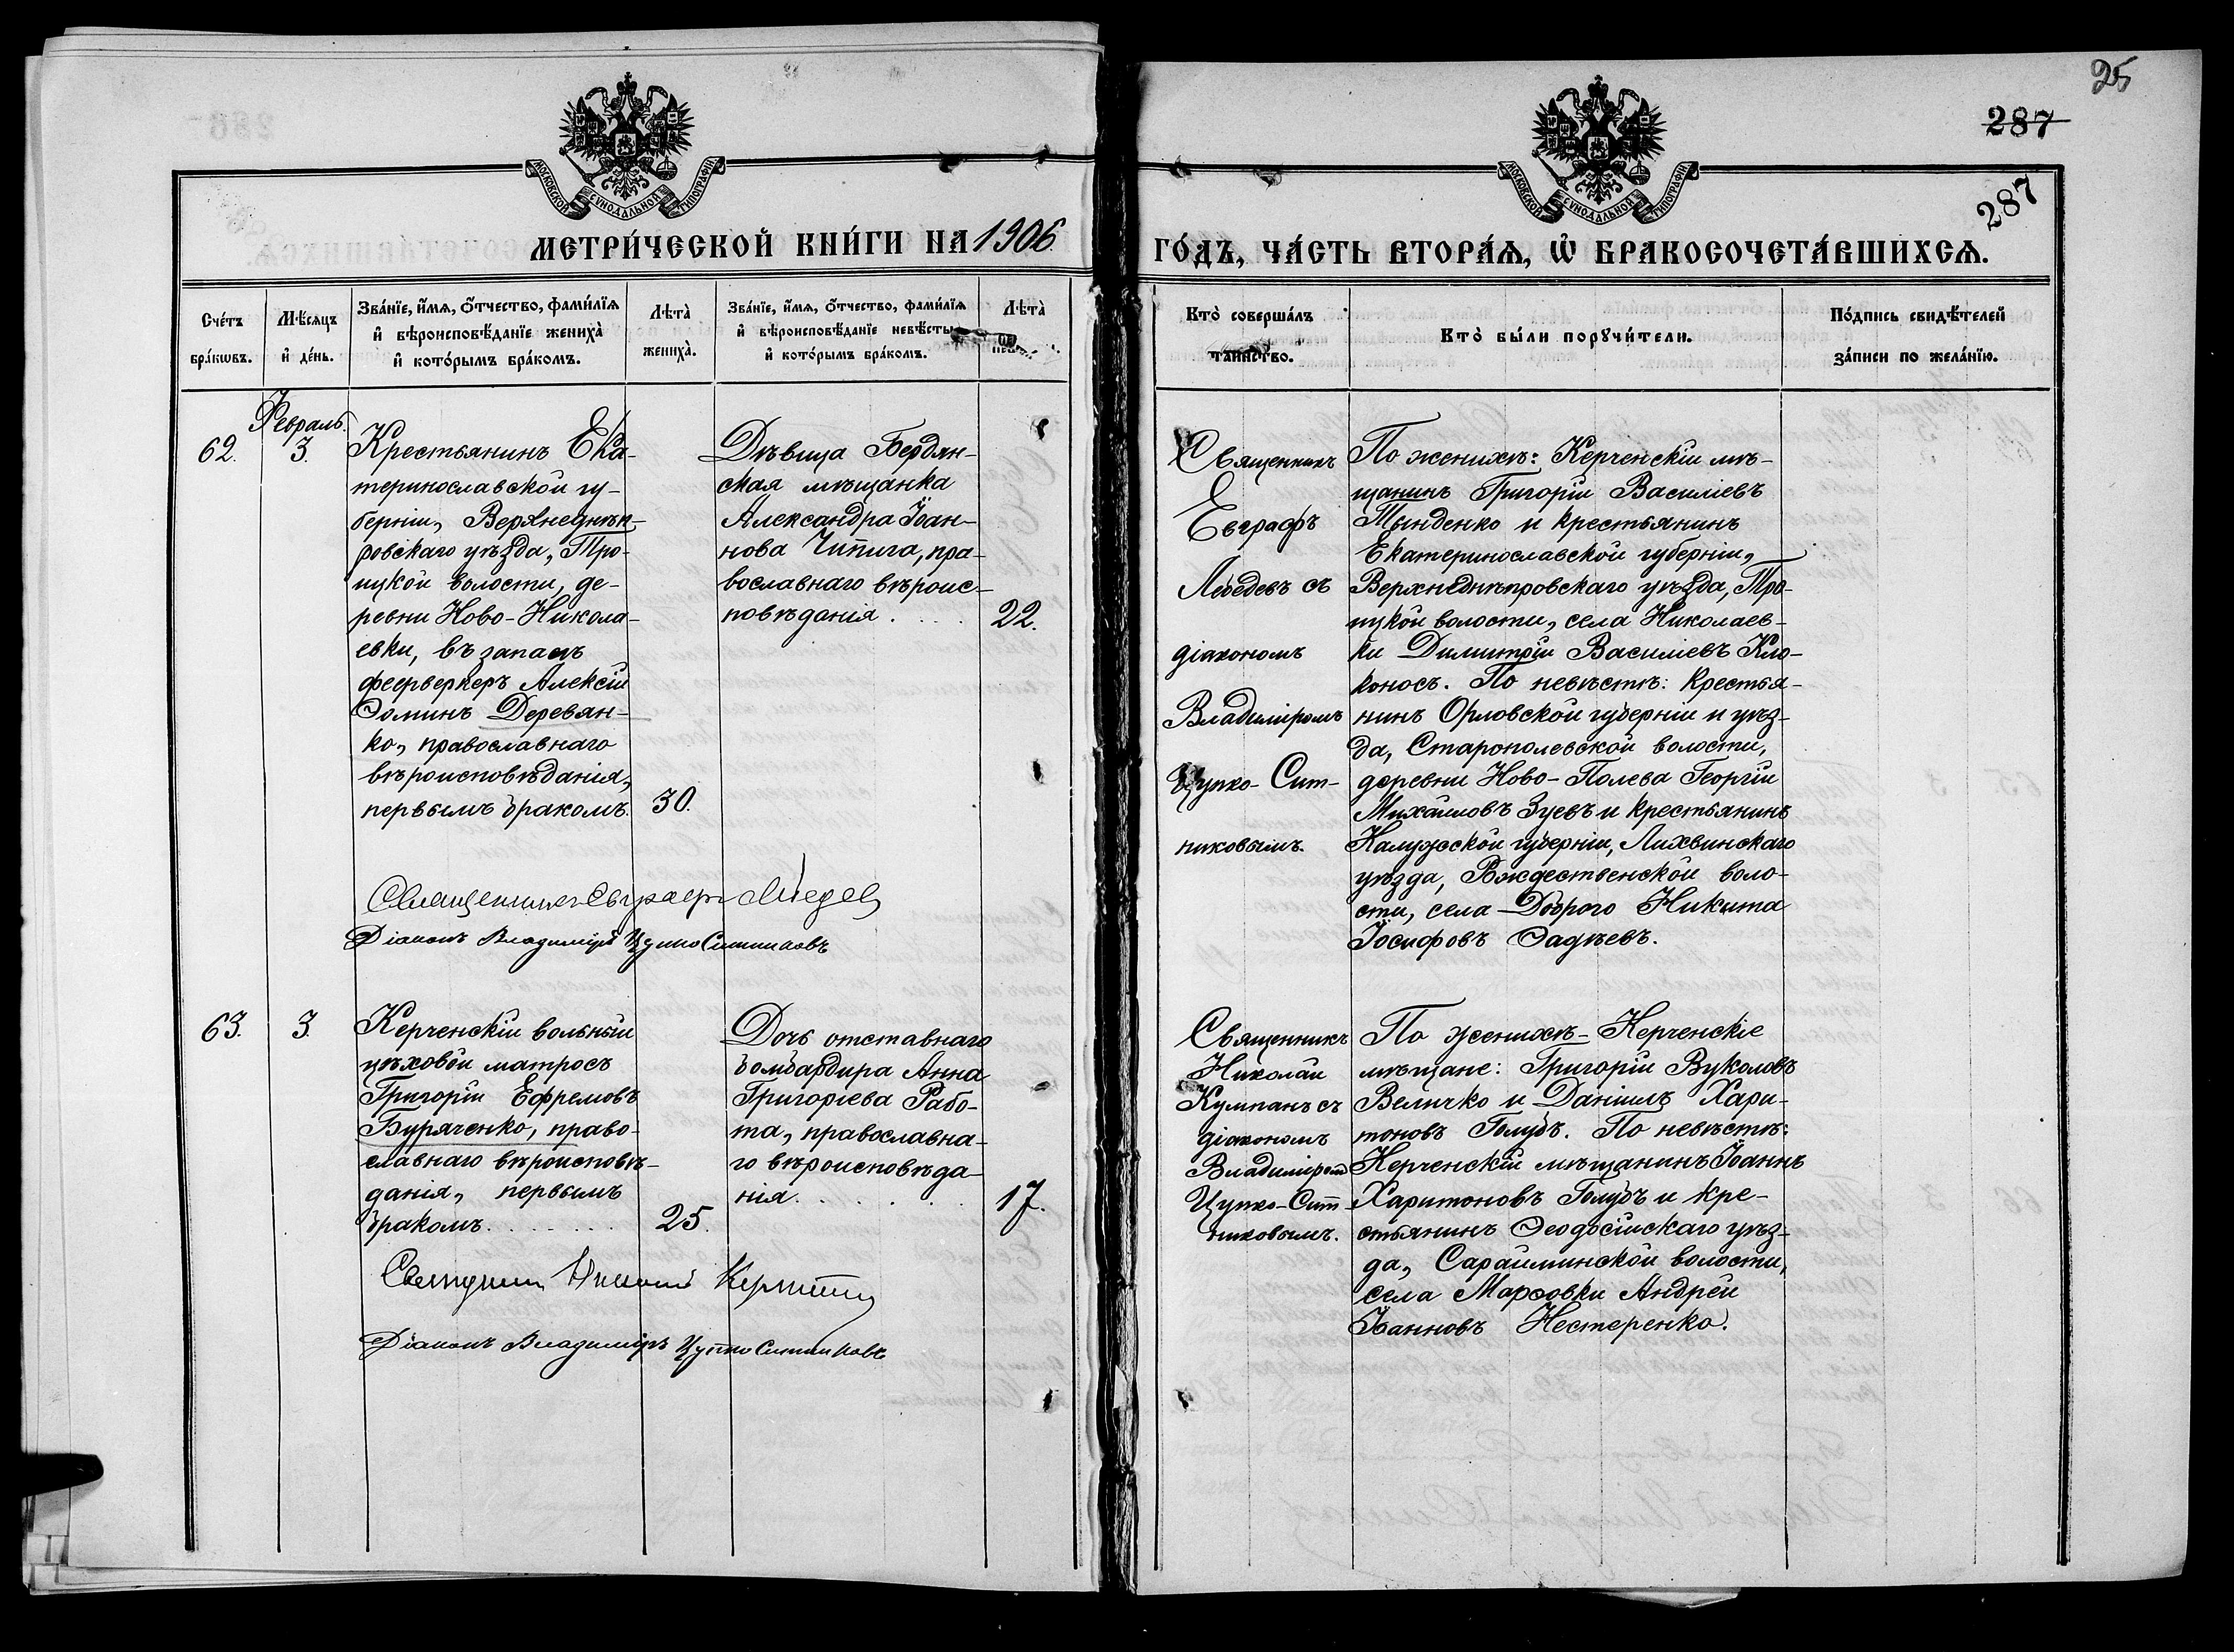 25
287
287
МОСКОВСКОЙ СѴНОДАЛЬНОЙ ТИПОГРАФІИ
МОСКОВСКОЙ СѴНОДАЛЬНОЙ ТИПОГРАФІИ
МЕТРИ́ЧЕСКОЙ КНИ́ГИ НА 1906
ГО́ДЪ, ЧА́СТЬ ВТОРА́Ѧ, Ѡ҆ БРАКОСОЧЕТА́ВШИХСѦ.
Сче́тъ
бра́кѡвъ.
Мѣ́сяцъ
и҆ де́нь.
Зва́нїе, и҆́мѧ, о҆́тчество, фами́лїѧ
и҆ вѣроисповѣ́данїе жениха̀
и҆ кото́рымъ бра́комъ.
Лѣта̀
жениха̀.
Зва́нїе, и҆́мѧ, о҆́тчество, фами́лїѧ
и҆ вѣроисповѣ́данїе невѣ́сты
и҆ кото́рымъ бра́комъ.
Лѣта̀
Кто̀ соверша́лъ
таинство.
Кто̀ бы́ли порꙋчи́тели.
По́дпись свидѣ́телей
за́писи по жела́нїю.
62.
Февраль.
3.
Крестьянинъ Ека-
теринославской гу-
берніи, Верхнеднѣп-
ровскаго уѣзда, Тро-
ицкой волости, де-
ревни Ново-Никола-
евки, въ запасѣ
феерверкеръ Алексій
Ѳоминъ Деревян-
ко, православнаго
вѣроисповѣданія,
первымъ бракомъ.
30.
Дѣвица Бердян-
ская мѣщанка
Александра Іоан-
нова Чипига, пра-
вославнаго вѣроис-
повѣданія . . . .
22.
Священникъ
Евграфъ
Лебедевъ съ
діакономъ
Владиміромъ
Цупко-Сит-
никовымъ.
По женихѣ: Керченскій мѣ-
щанинъ Григорій Василіевъ
Тынденко и крестьянинъ
Екатеринославской губерніи,
Верхнеднѣпровскаго уѣзда, Тро-
ицкой волости, села Николаев-
ки Димитрій Василіевъ Кло-
коносъ. По невѣстѣ: крестья-
нинъ Орловской губерніи и уѣз-
да, Старополевской волости,
деревни Ново-Полева Георгій
Михайловъ Зуевъ и крестьянинъ
Калужской губерніи, Лихвинскаго
уѣзда, Рждественской воло-
сти, села Доброго Никита
Іосифовъ Ѳадѣевъ.
Священникъ Евграфъ Лебедев
Діаконъ Владиміръ Цупко Ситниковъ
63.
3.
Керченскій вольный
цѣховой матросъ
Григорій Ефремовъ
Буряченко, право-
славнаго вѣроисповѣ-
данія, первымъ
бракомъ. . . . . . .
25.
Дочь отставнаго
бомбардира Анна
Григоріева Рабо-
та, православна-
го вѣроисповѣда-
нія. . . . . .
17.
Священникъ
Николай
Кумпанъ съ
діакономъ
Владиміромъ
Цупко-Сит-
никовымъ.
По женихѣ- Керченскіе
мѣщане: Григорій Вуколовъ
Величко и Даніилъ Хари-
тоновъ Голубъ. По невѣстѣ:
Керченскій мѣщанинъ Іоаннъ
Харитоновъ Голубъ и кре-
стьянинъ Ѳеодосійскаго уѣз-
да, Сарайминской волости,
села Марфовки Андрей
Іоанновъ Нестеренко.
Священник Николай
Діаконъ Владиміръ Цупко Ситниковъ